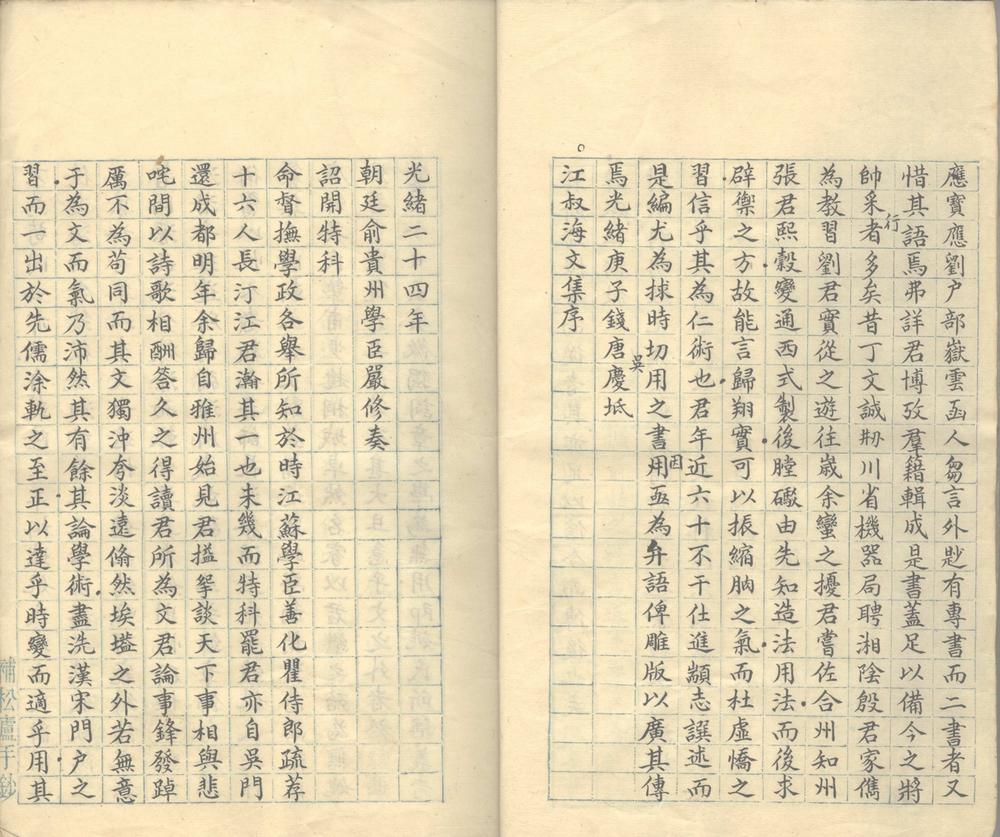 應寶應劉户部嶽雲函人芻言外尟有專書而二書者又
惜其語焉弗詳君博攷羣籍輯成是書蓋足以備今之將
帥采行者多矣昔丁文誠刱川省機器局聘湘陰殷君家儁
為教習劉君實從之遊往嵗余蠻之擾君嘗佐合州知州
張君熙榖變通西式製後膛礮由先知造法用法而後求
辟禦之方故能言歸翔實可以振縮朒之氣而杜虛憍之
習信乎其為仁術也君年近六十不干仕進顓志譔述而
是編尤為捄時切用之書用因亟為弁語俾雕版以廣其傳
焉光緒庚子錢唐吳慶坻
江叔海文集序
光緒二十四年
朝廷俞貴州學臣嚴修奏
詔開特科
命督撫學政各舉所知於時江蘇學臣善化瞿侍郎疏荐
十六人長汀江君瀚其一也未幾而特科罷君亦自吳門
還成都明年余歸自雅州始見君搤擥談天下事相與悲
咤間以詩歌相酬答久之得讀君所為文君論事鋒發踔
厲不為苟同而其文獨沖夸淡遠翛然埃壒之外若無意
于為文而氣乃沛然其有餘其論學術盡洗漢宋門户之
習而一出於先儒涂軌之至正以達乎時變而適乎用其
補松廬手鈔